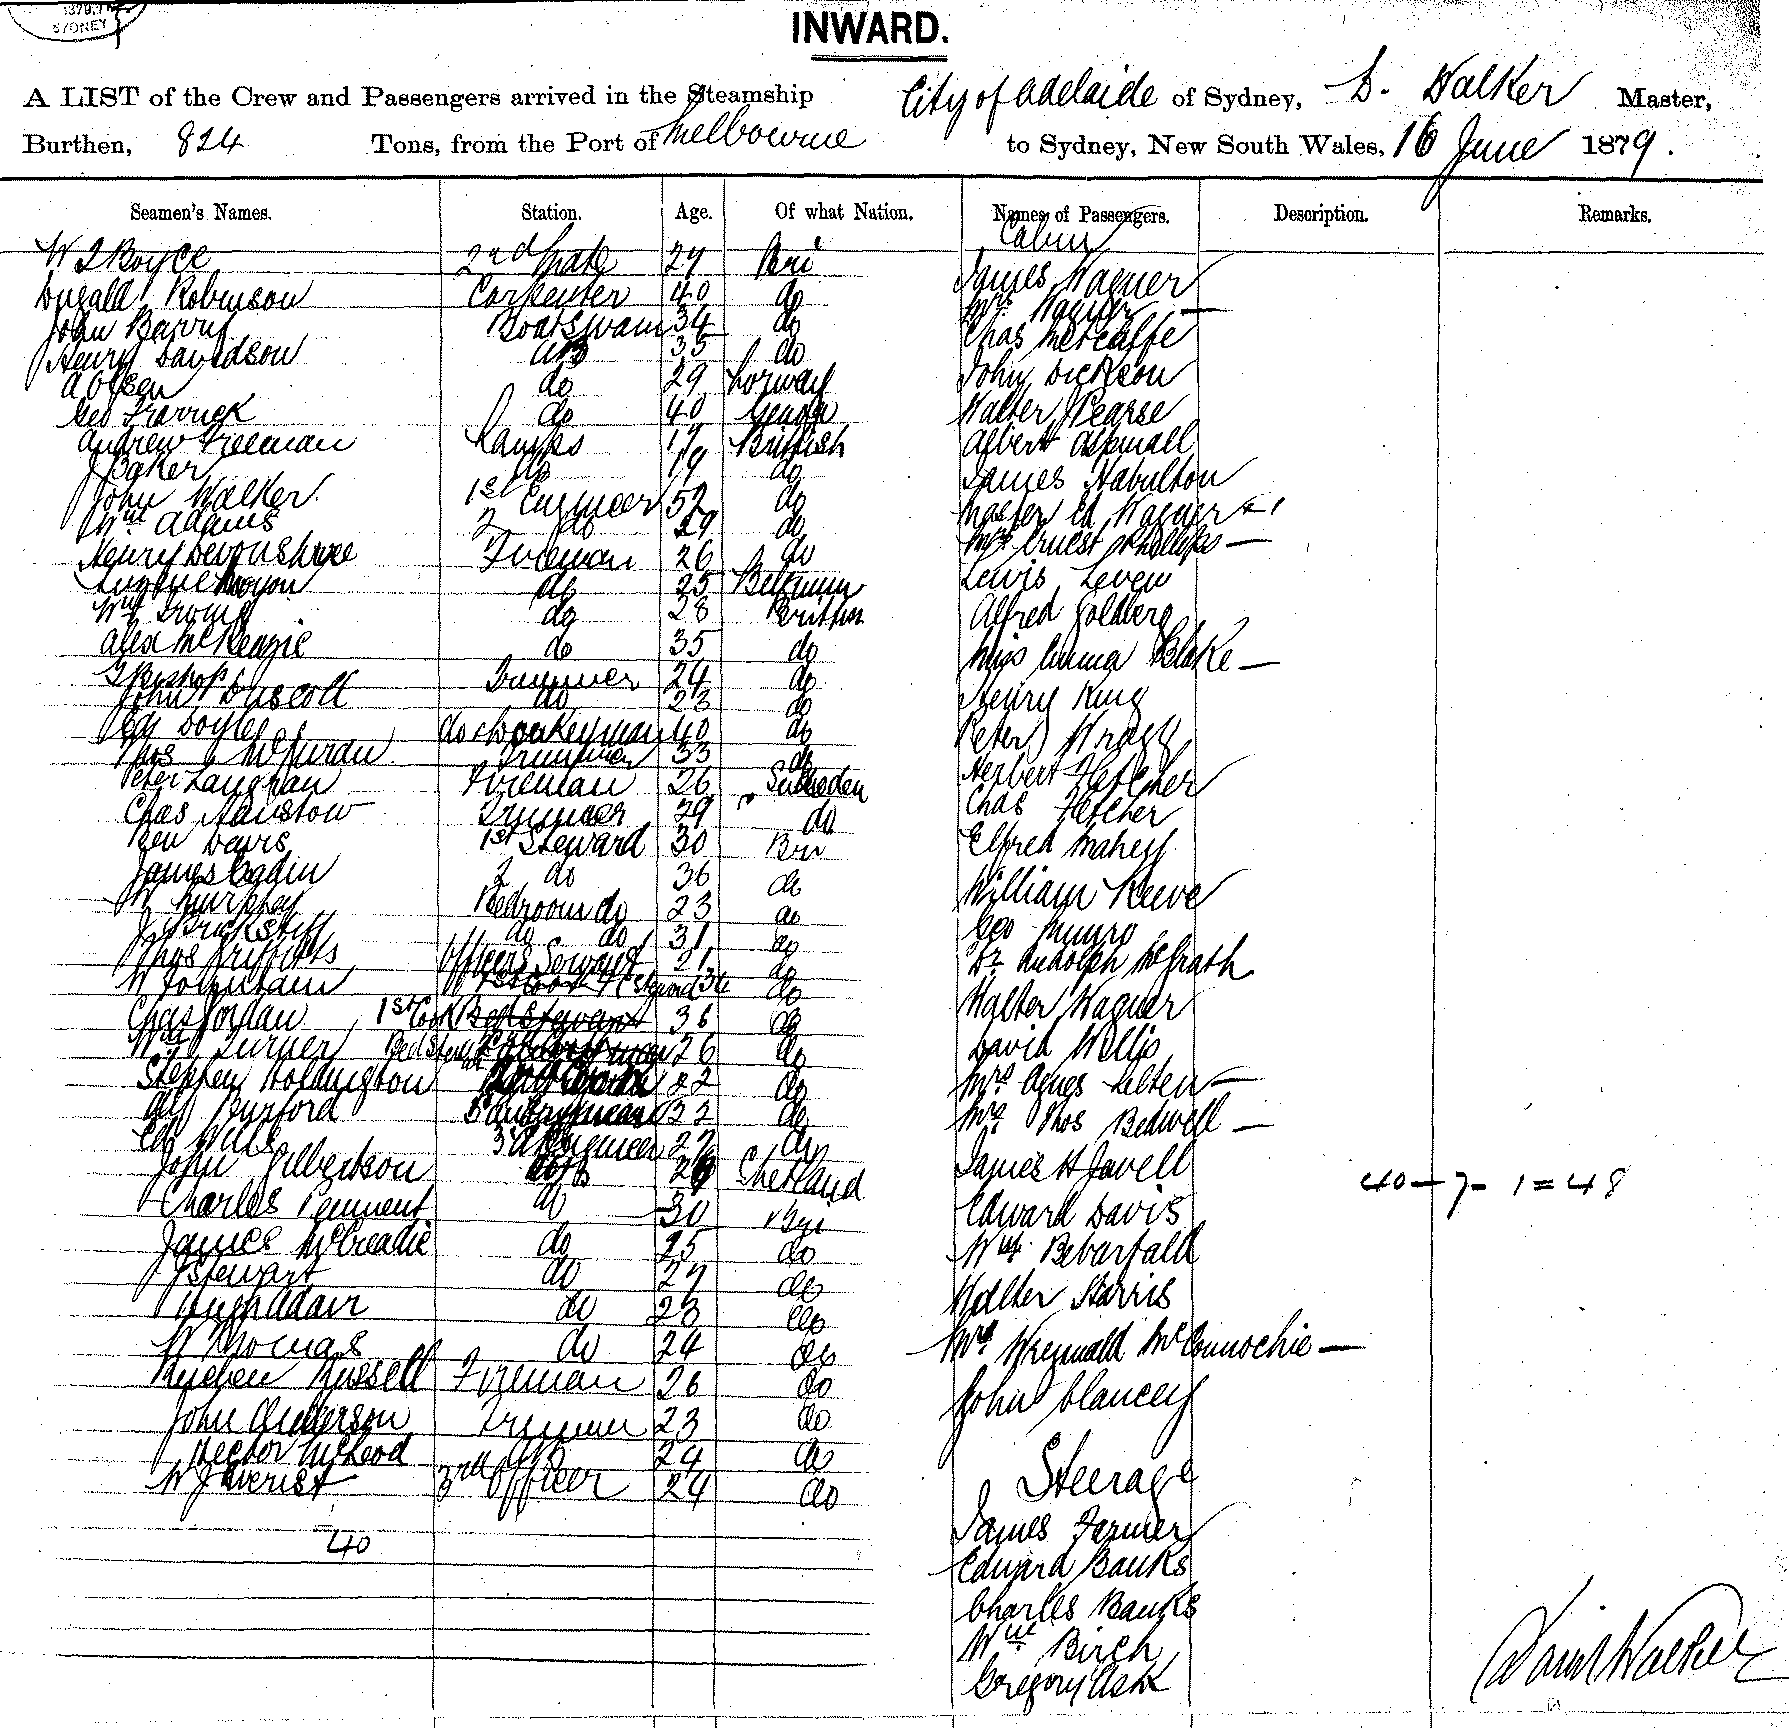 SYDNEY
INWARD.
A LIST of the Crew and Passengers arrived in the Steamship City of Adelaide of Sydney, D. Walker Master,
Burthen, 824 Tons, from the Port of Melbourne to Sydney, New South Wales, 16 June 1879.
Seamen's Names. Station. Age. Of what Nation. Names of Passengers. Description. Remarks.
Cabin
W J Boyce 2nd Mate 27 Bri James Wagner
Dugald Robinson Carpenter 40 do Mrs Wagner —
John Barry Boatswain 34 do Chas Metcalfe
Henry Davidson AB 35 do John Dickson
A Olsen do 29 Norway Walter Pearse
Geo do 40 Albert Aspinall
Andrew Freeman Lamps 19 British James
J Baker do 19 do Ed Wagner
John Walker 1st Engineer 52 do Ernest Phillips —
Wm Adams 2 do 29 do Lewis Leven
Henry Devonshire Fireman 26 do Alfred Goldberg
Eugene do 25 Belgium Miss Emma Blake —
Wm Irving do 28 British Henry King
Alex McKenzie do 35 do Peter Wragg
J Bishop Trimmer 24 do Herbert Fletcher
John Driscoll do 23 do Chas Fletcher
Ed Doyle do & Donkeyman 40 do Elfred Mahey
Thos Trimmer 33 do William Reeve
Peter Fireman 26 Sweden Geo Munro
Chas Trimmer 29 do Dr Rudolph McGrath
Ben Davis 1st Steward 30 Bri Walter Wagner
James 2 do 36 do David Wellis
W Murphy Bedroom do 23 do Mrs Agnes —
J do do 31 do Mrs Thos Bedwell —
Thos Griffiths Officers Servant 21 do James H Javell
W do Edward Davis
Chas Jordan 1st Cook 36 do Wm Bebarfald
Wm Turner 26 do Walter Harris
Stephen 22 do Mrs McConnochie —
Alf Burford do John Clancey
3d Engineer 27 do
John Gilbertson AB Shetland 40 — 7 — 1 = 48
Charles do 30 Bri
James McCreadie do 25 do
J Stewart do 27 do
Hugh Adair do 23 do
W Thomas do 24 do
Stephen Russell Fireman 26 do Steerage
John Anderson Trimmer 23 do James Farmer
Hector McLeod 24 do Edward Banks
W J 3rd Officer 24 do Charles Banks
40 Wm Birch
Gregory Ask
David Walker